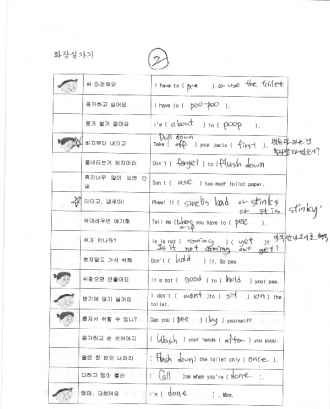 화장실가기
②
쉬 마려워요 I have to ( pee ). or use the toilet.
응가하고 싶어요 I have to ( poo-poo ).
응가 쌀거 같아요 I'm ( about ) to ( poop ).
Pull down
바지부터 내리고 Take ( off ) your pants ( first ).
물내리는거 잊지마라 Don't ( forget ) to (flush down
휴지너무 많이 쓰면 안 Don't ( use ) too much toilet paper.
아이고, 냄새야! Phew! It ( smells bad or stinks
or It is stinky.
쉬마려우면 얘기해 Tell me (when) you have to ( pee ).
or if
쉬가 안나와? Is is not ( coming ) ( yet )?
Is it not coming out yet?
참지말고 가서 쉬해 Don't ( hold ) it. Go pee.
쉬참으면 안좋아요 It's not ( good ) to ( hold ) your pee.
변기에 앉기 싫어요 I don't ( want ) to ( sit ) (on) the toilet.
혼자서 쉬할 수 있니? Can you ( pee ) (by) yourself?
응가하고 손 씻어야지 ( Wash ) your hands ( after ) you poop.
물은 한 번만 내려라 (Flush down) the toilet only ( once ).
다하고 엄마 불러 ( Call ) me when you're (done ).
엄마, 다했어요 I'm ( done ), Mom.